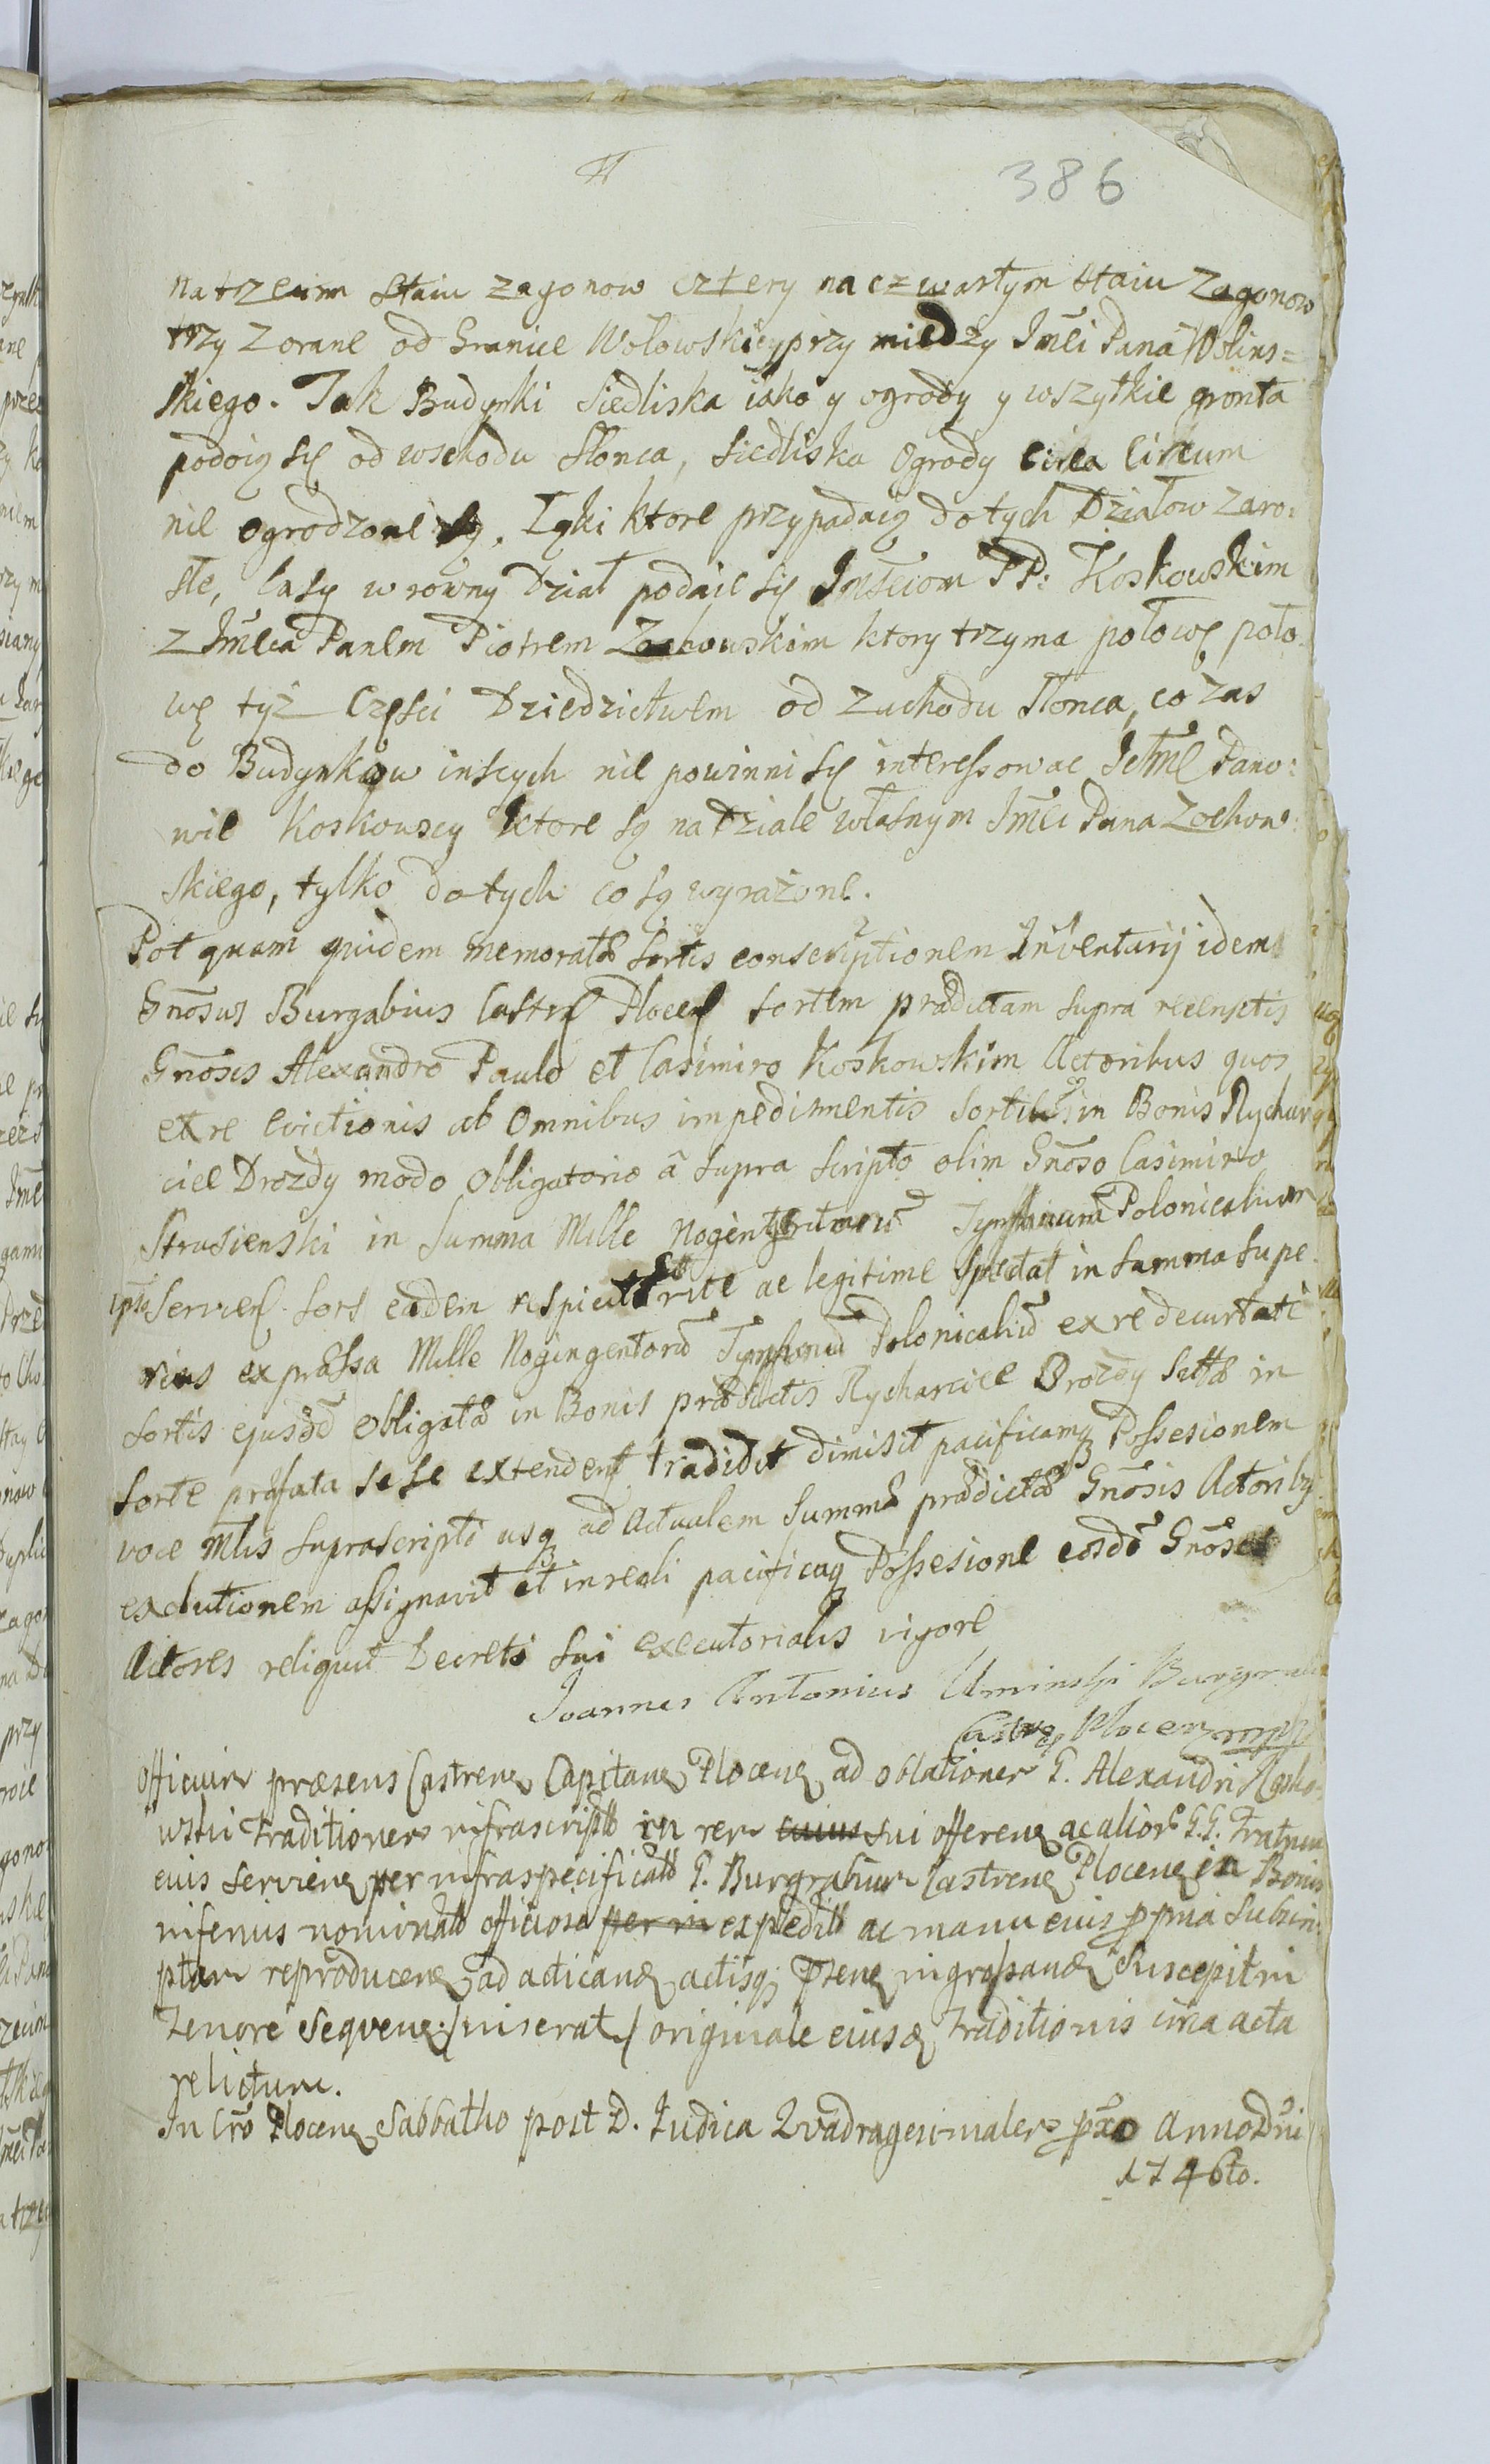 386
na trzecim staiu zagonow cztery na czwartym staiu zagonow
trzy zorane od Granice Wołowskiey przy miedzy Jmci Pana Wolins=
skiego. Tak Budynki Siedliska iako y ogrody y wszytkie gronta
podaią się od wschodu słonca, siedliska ogrody circa circum
nie ogrodzone są. Łąki ktore przypadaią do tych Działow zaro:
słe, lasy w rowny Dział podaie się Jmściom PP: Koskowskim
z Jmcią Panem Piotrem Zochowskim ktory trzyma połowę poło
wę tyż Częsci Dziedzictwem od zachodu słonca, co zas
do Budynkow inszych nie powinni się interessowac Ichmć Pano:
wie Koskowscy ktore są na dziale własnym Jmci Pana Zochow:
skiego, tylko do tych co są wyrażone.
Post quam quidem memoratæ sortis conscriptionem Inventarij idem
Gnosus Burgabius Castren Plocen sortem prædictam supra recensitis
Gnosis Alexandro Paulo et Casimiro Koskowskim Actoribus quos
ex re evictionis ab omnibus impedimentis sortis in Bonis Rychar
cice Drozdy modo obligatorio à supra scripto olim Gnoso Casimiro
Strusienski in summa Mille Nogentorum Tymphonum Polonicalium
ipsis servien. sors eadem respicit rite ac legitime spectat in summa supe
rius expressa Mille Nogingentorũ Tymphonũ Polonicaliũ ex re decurtati
sortis ejusdẽ obligatæ in Bonis prædictis Rycharcice Drozdy sittæ in
sorte præfata sese extenden tradidit dimisit pacificamq Possesionem
voce Mlis suprascripti usq ad actualem summæ prædictæ Gnosis Actoribq
exolutionem assignavit et in reali pacificaq Possesione eosdẽ Gnosos
Actores reliquit Decreti sui executorialis vigore
Joannes Antonius Uminski Burgrabius
Castren Plocen mpp
Officium præsens Castren Capitan Plocen ad oblationem G. Alexandri Kosko
wski Traditionem infrascriptã in rem cuius sui offeren ac aliorũ G.G. Fratrum
eius servien per infraspecificatũ G. Burgrabium Castren Plocen in Bonis
inferius nominatis officiose per in expeditã ac manu eius ppria subscri
ptam reproducen ad acticand actisq; psen ingrossand suscepit in
tenore sequen. /inserat/ originale eiusd traditionis circa acta
relictum.
In Cro Plocen Sabbatho post D. Judica Quadragesimalem pxo Anno Dni
1746to.